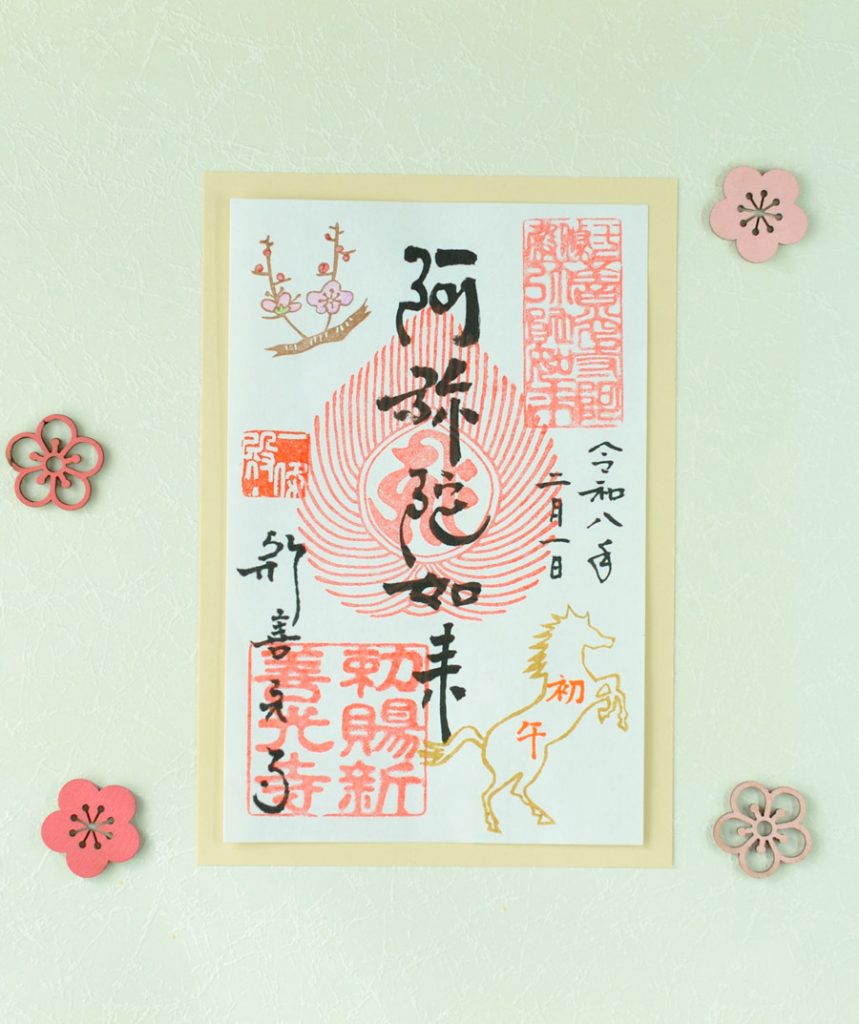 令和八年
二月一日
阿弥陀如来
新善光寺
勅賜新
善光寺
初
午